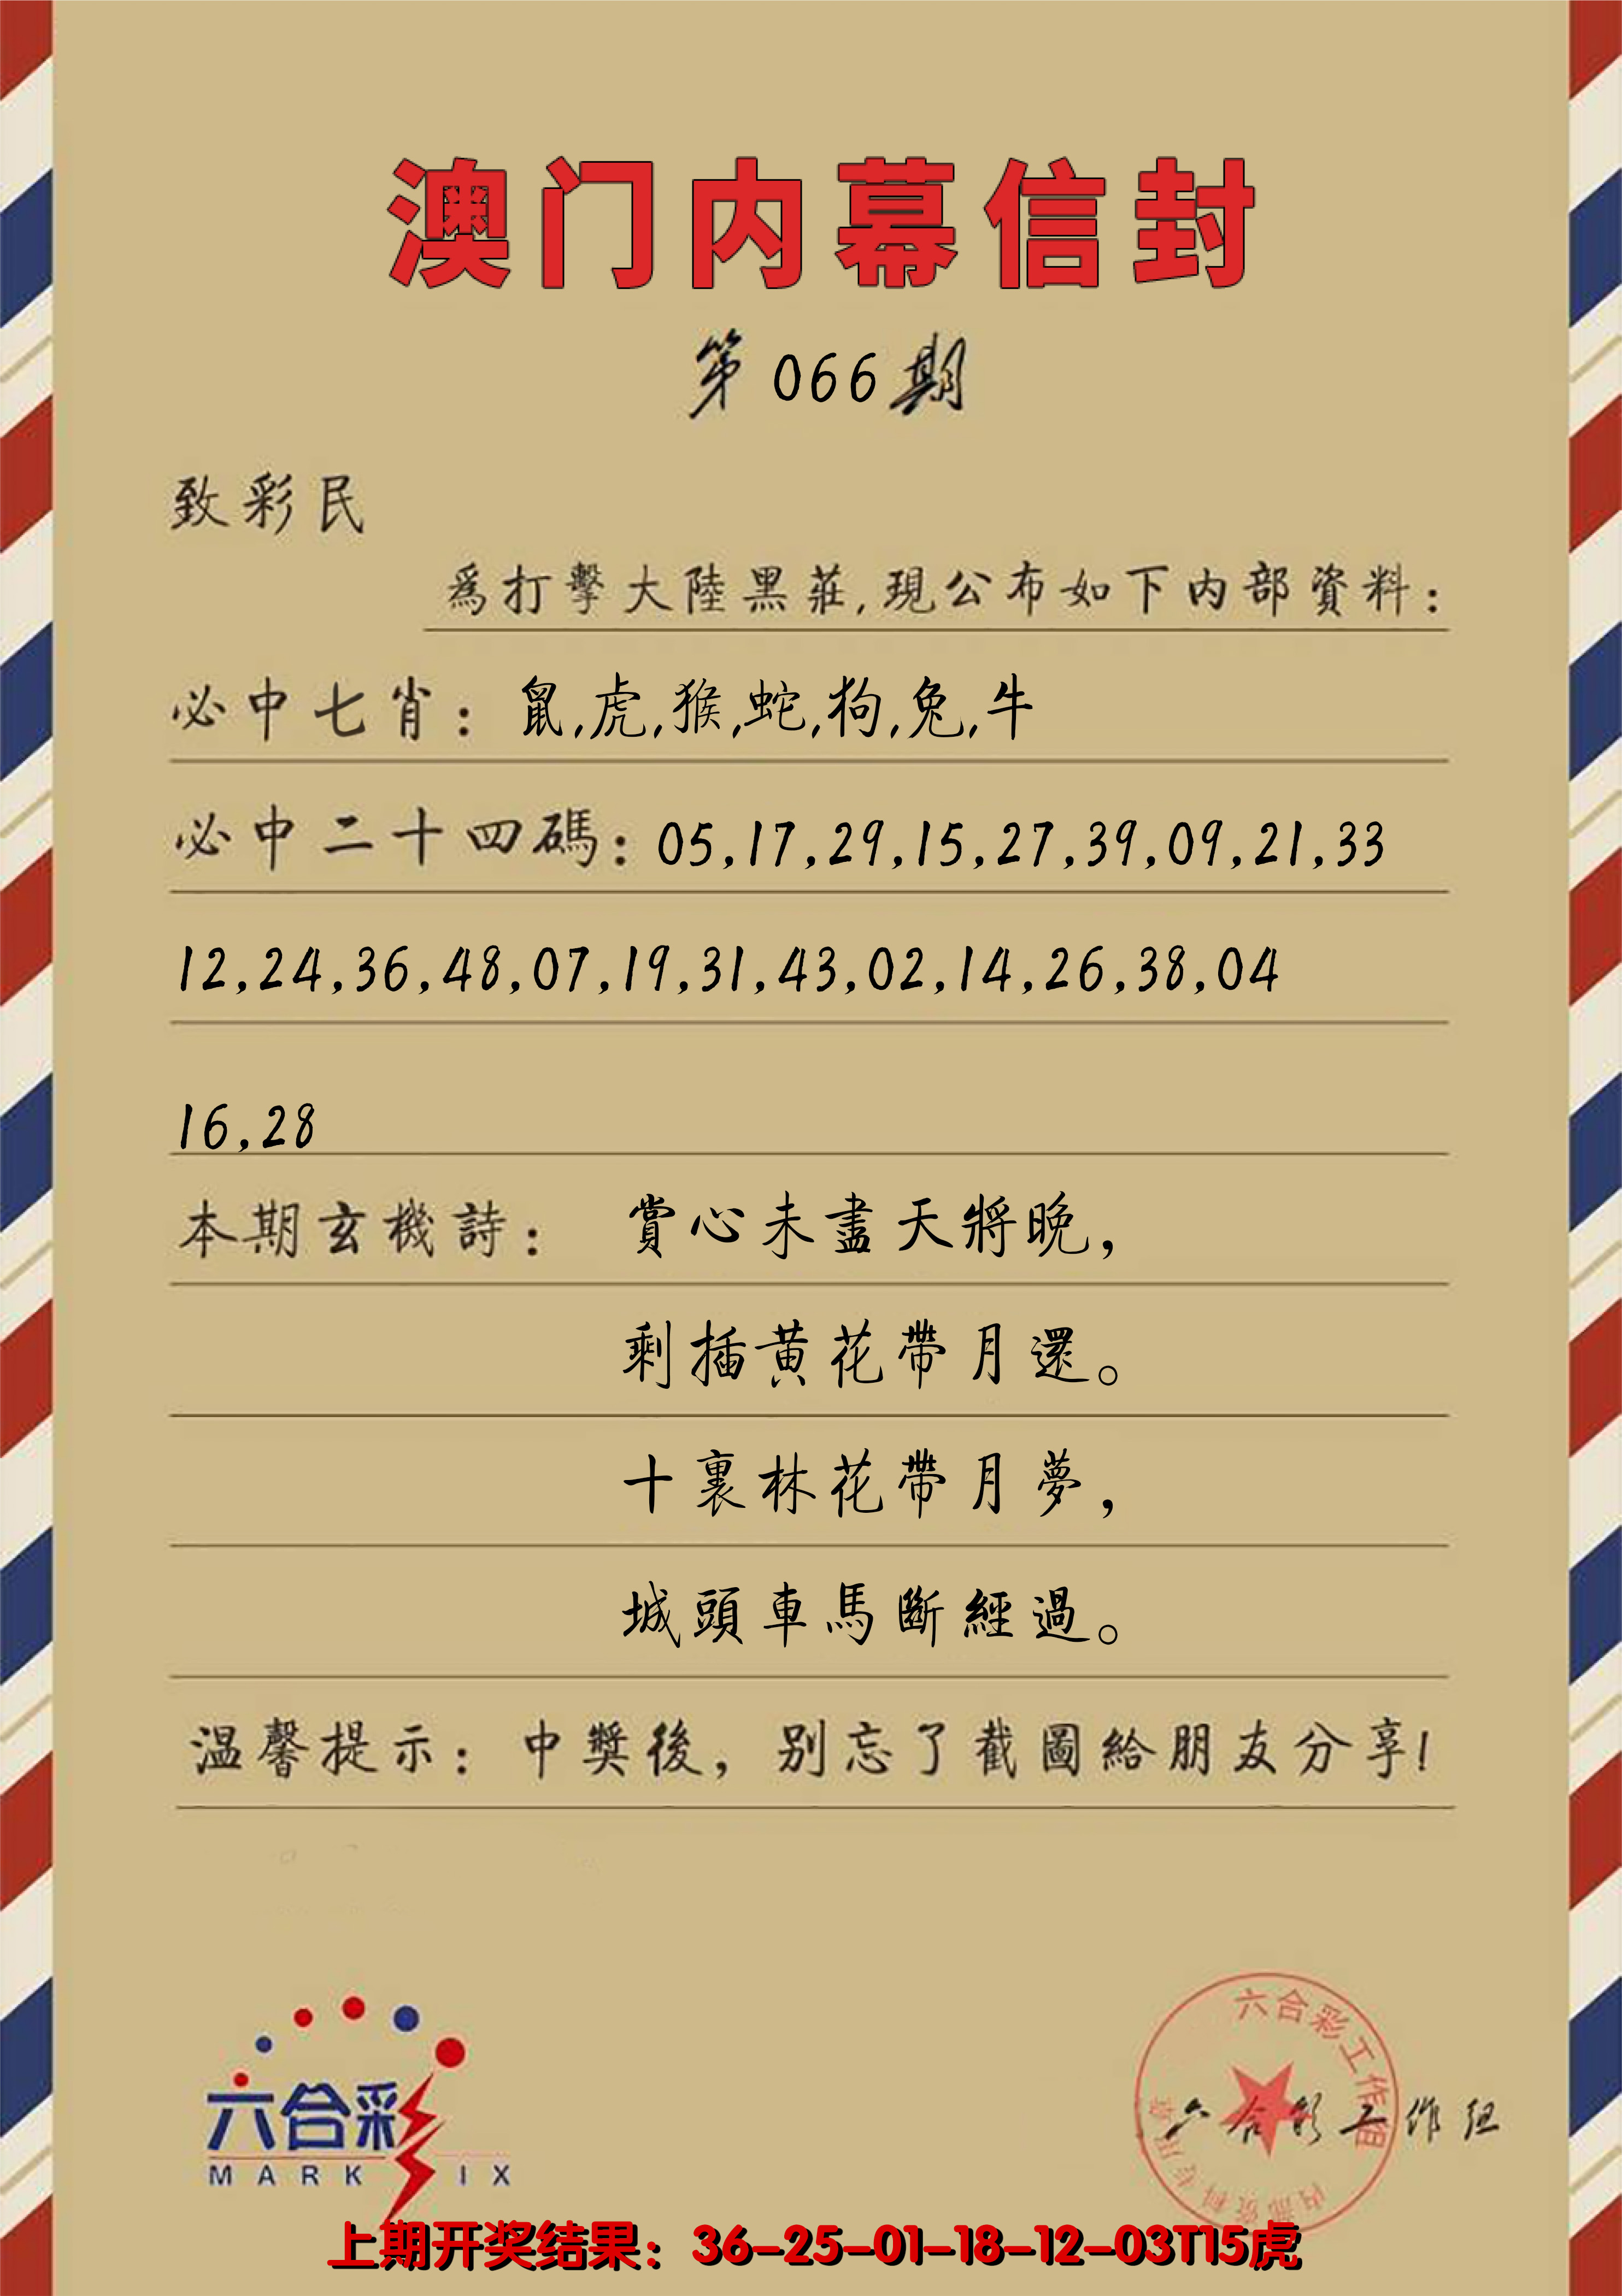 澳门内幕信封
第066期
致彩民
爲打擊大陸黑莊,現公布如下内部資料:
必中七肖: 鼠,虎,猴,蛇,狗,兔,牛
必中二十四碼: 05,17,29,15,27,39,09,21,33
12,24,36,48,07,19,31,43,02,14,26,38,04
16,28
本期玄機詩: 賞心未盡天將晚,
剩插黄花帶月還。
十裏林花帶月夢,
城頭車馬斷經過。
温馨提示: 中獎後, 别忘了截圖給朋友分享!
六合彩
MARK IX
六合彩工作组
内部资料专用章
六合彩工作组
上期开奖结果: 36-25-01-18-12-03T15虎